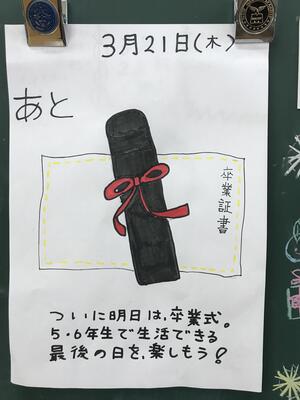 3月21日(木)
あと
卒業証書
ついに明日は,卒業式。
5・6年生で生活できる
最後の日を,楽しもう!